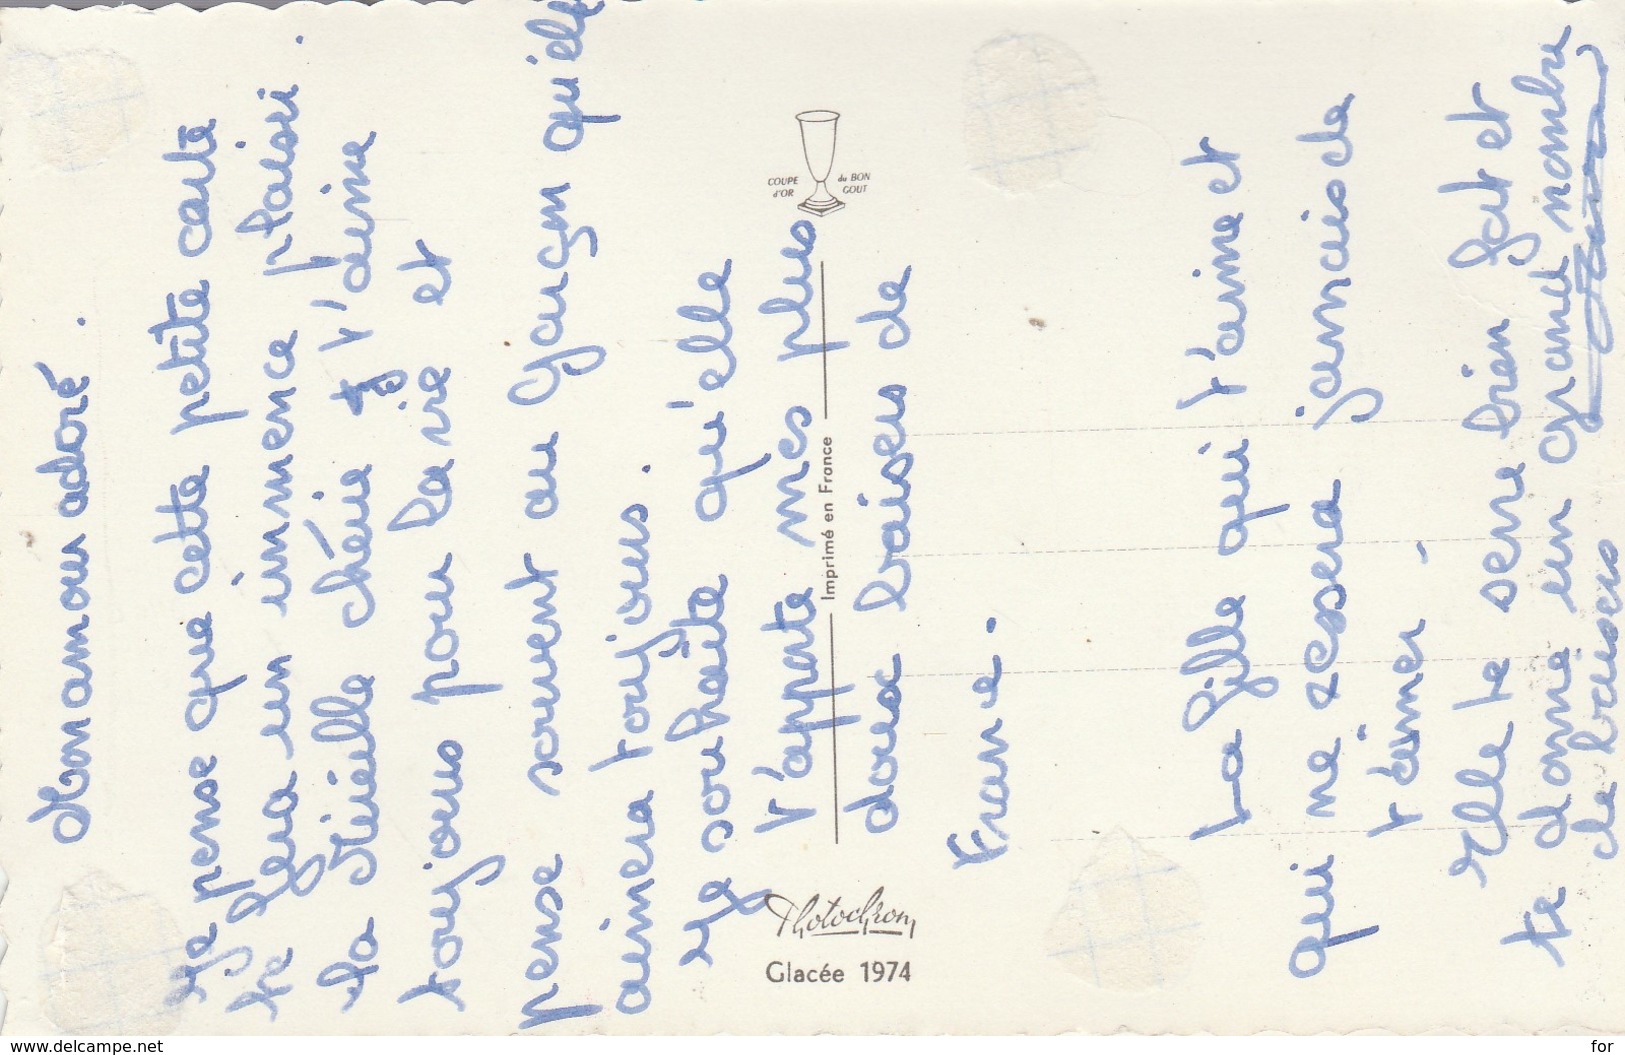 Mamamou adoré.
Je pense que cette petite carte
te fera un immence plaisir.
ta Mireille chérie t'aime
toujours pour la vie et
pense souvent au garçon qu'elle
aimera toujours.
Je souhaite qu'elle
t'apporte mes plus
doux baisers de
France.
COUPE d'OR du BON GOUT
Imprimé en France
Photochrom
Glacée 1974
ta fille qui t'aime et
qui ne cessera jamais de
t'aimer -
Elle te serre bien fort et
te donne un grand nombre
de baisers
www.delcampe.net
for